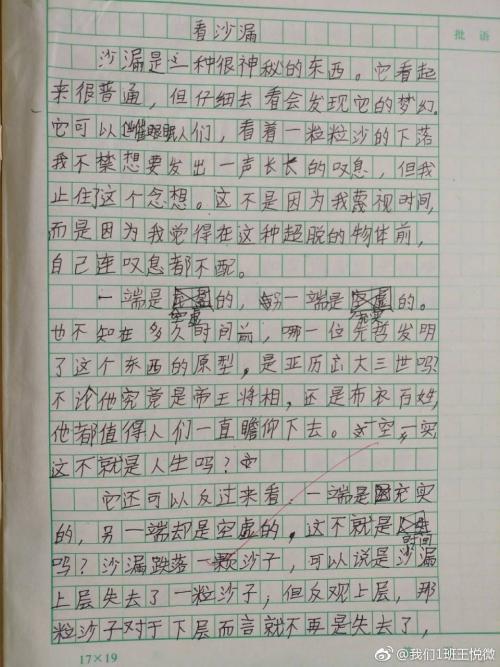 批 语
看沙漏
沙漏是一种很神秘的东西。它看起
来很普通，但仔细去看会发现它的梦幻。
它可以催眠人们，看着一粒粒沙的下落
我不禁想要发出一声长长的叹息，但我
止住了这个念想。这不是因为我蔑视时间，
而是因为我觉得在这种超脱的物体前，
自己连叹息都不配。
一端是空虚的，另一端是充实的。
也不知在多久时间前，哪一位先哲发明
了这个东西的原型，是亚历山大三世吗？
不论他究竟是帝王将相，还是布衣百姓，
他都值得人们一直瞻仰下去。一空一实
这不就是人生吗？
它还可以反过来看：一端是充实
的，另一端却是空虚的，这不就是时间
吗？沙漏跌落一颗沙子，可以说是沙漏
上层失去了一粒沙子；但反观上层，那
粒沙子对于下层而言就不再是失去了，
17×19
@我们1班王悦微